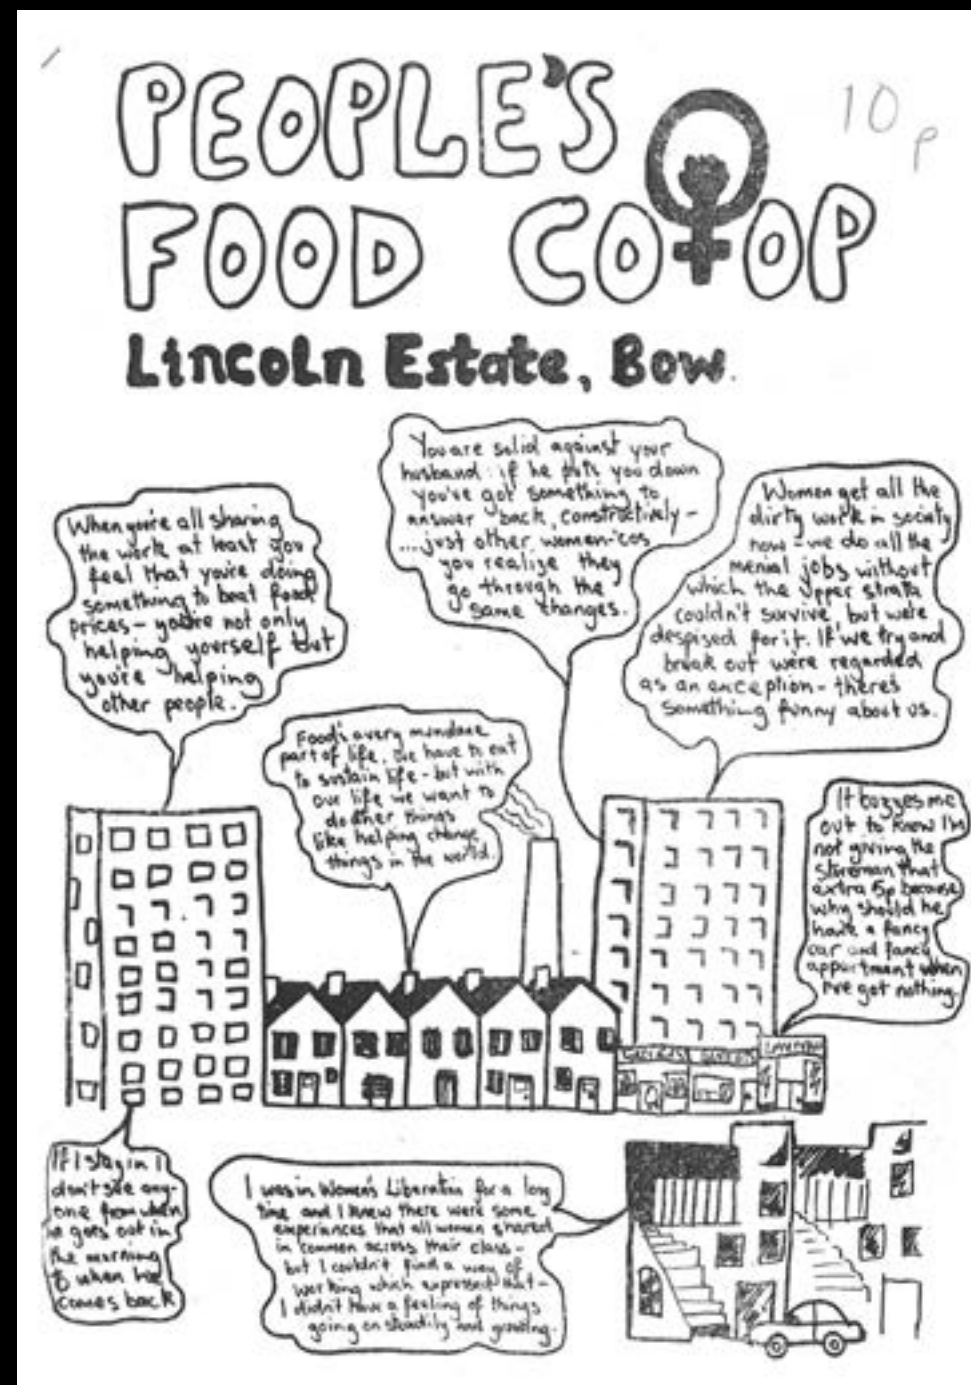 PEOPLE'S
10p
FOOD CO OP
Lincoln Estate, Bow.
When you're all sharing
the work at least you
feel that you're doing
something to beat food
prices - you're not only
helping yourself but
you're helping
other people.
You are solid against your
husband: if he puts you down
you've got something to
answer back, constructively -
...just other women - cos
you realize they
go through the
same changes.
Women get all the
dirty work in society
now - we do all the
menial jobs without
which the upper strata
couldn't survive, but we're
despised for it. If we try and
break out we're regarded
as an exception - there's
something funny about us.
Food's a very mundane
part of life. We have to eat
to sustain life - but with
our life we want to
do other things
like helping change
things in the world.
It buzzes me
out to know I'm
not giving the
storeman that
extra 5p because
why should he
have a fancy
car and fancy
appartment when
I've got nothing.
If I stay in I
don't see any-
one from when
he goes out in
the morning
to when he
comes back
I was in Women's Liberation for a long
time and I knew there were some
experiences that all women shared
in common across their class -
but I couldn't find a way of
working which expressed that -
I didn't have a feeling of things
going on steadily and growing.